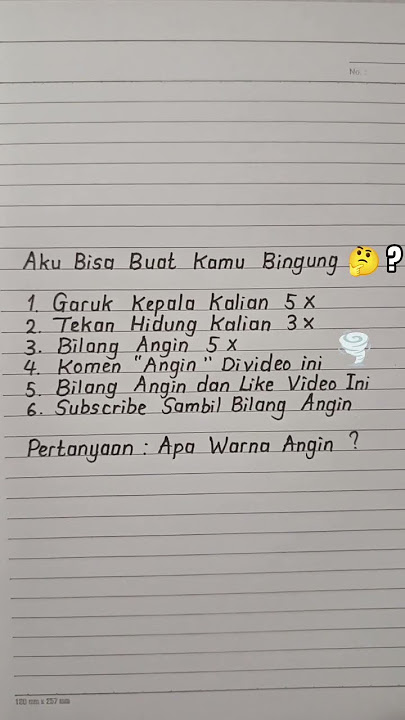 No. :
Aku Bisa Buat Kamu Bingung 🤔?
1. Garuk Kepala Kalian 5 x
2. Tekan Hidung Kalian 3 x
3. Bilang Angin 5 x
4. Komen "Angin" Divideo ini
5. Bilang Angin dan Like Video Ini
6. Subscribe Sambil Bilang Angin
Pertanyaan : Apa Warna Angin ?